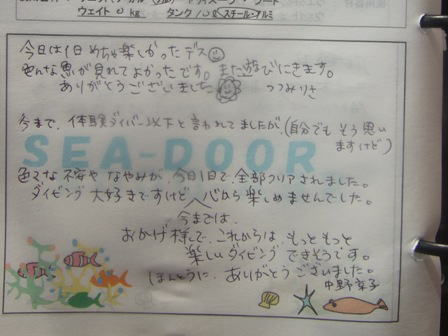 ウェイト 0 kg タンク 10ℓ スチール・アルミ
今日は1日 めちゃ楽しかったデス
色んな魚が見れてよかったです。また遊びにきます。
ありがとうございました
つつみりさ
今まで、体験ダイバー以下と言われてましたが、(自分でも そう思い
ますけど)
SEA-DOOR
色々な不安や なやみが、今日1日で、全部クリアされました。
ダイビング 大好きですけど 心から楽しめませんでした。
今までは、
おかげ様で、これからは、もっともっと
楽しいダイビング できそうです。
ほんとうに、ありがとう ございました。
中野